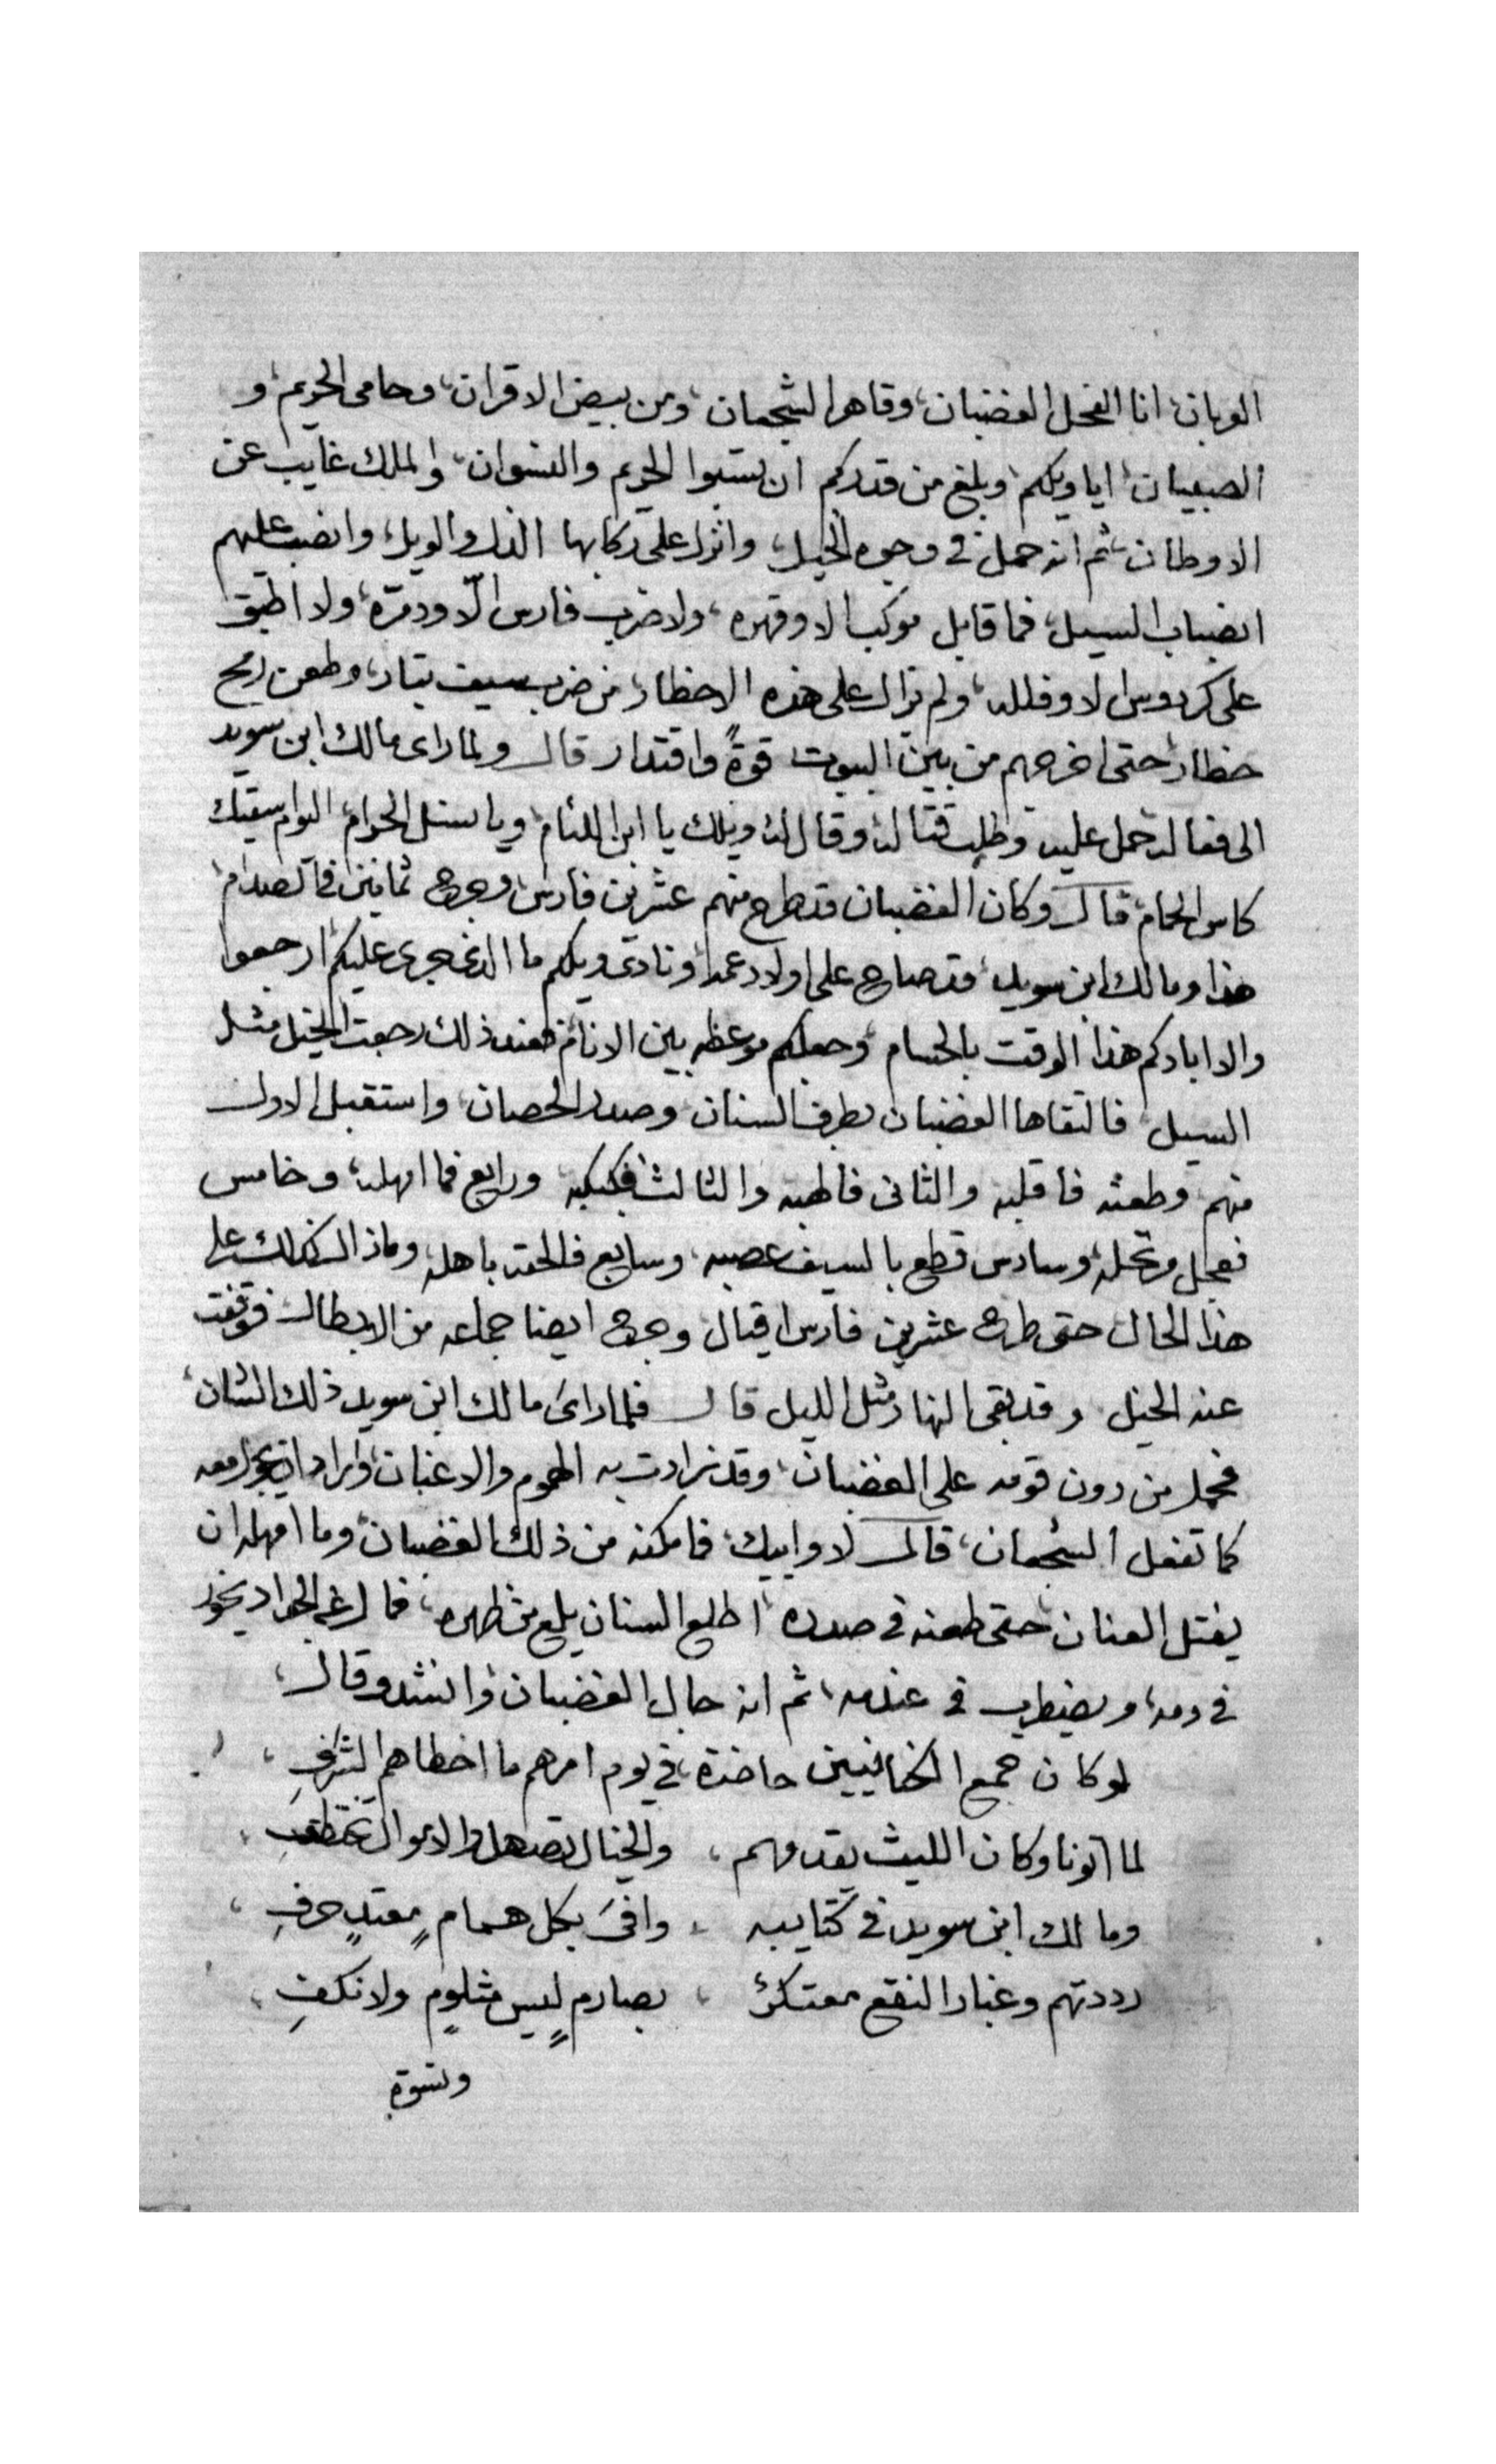 العربان، انا الفحل الغضبان، وقاهر الشجعان، ومن بيض الاقران، وحامى الحريم، و
الصبيان، ايا ويلكم، وبلغ من قدركم ان تسبوا الحريم والنسوان، والملك غايب عن
الاوطان، ثم انه حمل فى وجوه الخيل، وانزل على ركابها الذل والويل، وانصب عليهم
انصباب السيل، فما قابل موكب الا وقهره، ولا ضرب فارس الّا ودمّره، ولا اطبق
على كردوس الا وفلله، ولم تزال على هذه الاخطار، من ضرب سيف بتار، وطعن رمح
خطار، حتى اخرجهم من بين البيوت قوةً واقتدار قال ولما راى مالك ابن سويد
الى فعاله حمل عليه وطلب قتاله، وقال له، ويلك يا ابن اللئام، ويا نسل الحرام، اليوم اسقيك
كاس الحمام، قال وكان الغضبان قد طرح منهم عشرين فارس، وجرح ثمانين فى الصدام،
هذا ومالك ابن سويد، قد صاح على اولاد عمه، ونادى ويلكم ما الذى جرى عليكم ارجعوا
والا ابادكم هذا الوقت بالحسام، وجعلكم موعظه بين الانام، فعند ذلك رجعت الخيل مثل
السيل، فالتقاها الغضبان بطرف السنان، وصدر الحصان، واستقبل الاول
منهم، وطعنه فاقلبه والثانى فالهبه والثالث فكبكبه، ورابع فما امهله، وخامس
فعجل مرتحله، وسادس قطع بالسيف عصبه، وسابع فالحقه باهله، وماذال كذلك على
هذا الحال حتى طرح عشرين فارس اقيال، وجرح ايضا جماعه من الابطال، فوقفت
عنه الخيل، وقد بقى النهار مثل الليل قال فلما راىَ مالك ابن سويد ذلك الشان،
فحمل من دون قومه على الغضبان، وقد زادت به الهموم والاغبان، واراد ان يجول معه
كما تفعل الشجعان، قال لا وابيك، فما مكنه من ذلك الغضبان، وما امهله ان
يفتل العنان، حتى طعنه فى صدره، اطلع السنان يلمع من ظهره، فمال عن الجواد يخور
فى دمه، ويضطرب فى عندمه، ثم انه جال الغضبان، وانشد وقال،
لو كان جمع حاضرة، فى يوم امرهم ما اخطاهم الشرفِ،
لما اتونا وكان الليث يقدمهم، والخيل تصهل والاموال تختطفِ،
ومالك ابن سويد فى كتايبه، وافىَ بكل همامٍ معتدٍ حرفِ،
رددتهم وغبار النقع معتكرٌ، بصارمٍ ليس مثلومٍ ولا نكفِ،
ونسوةٍ